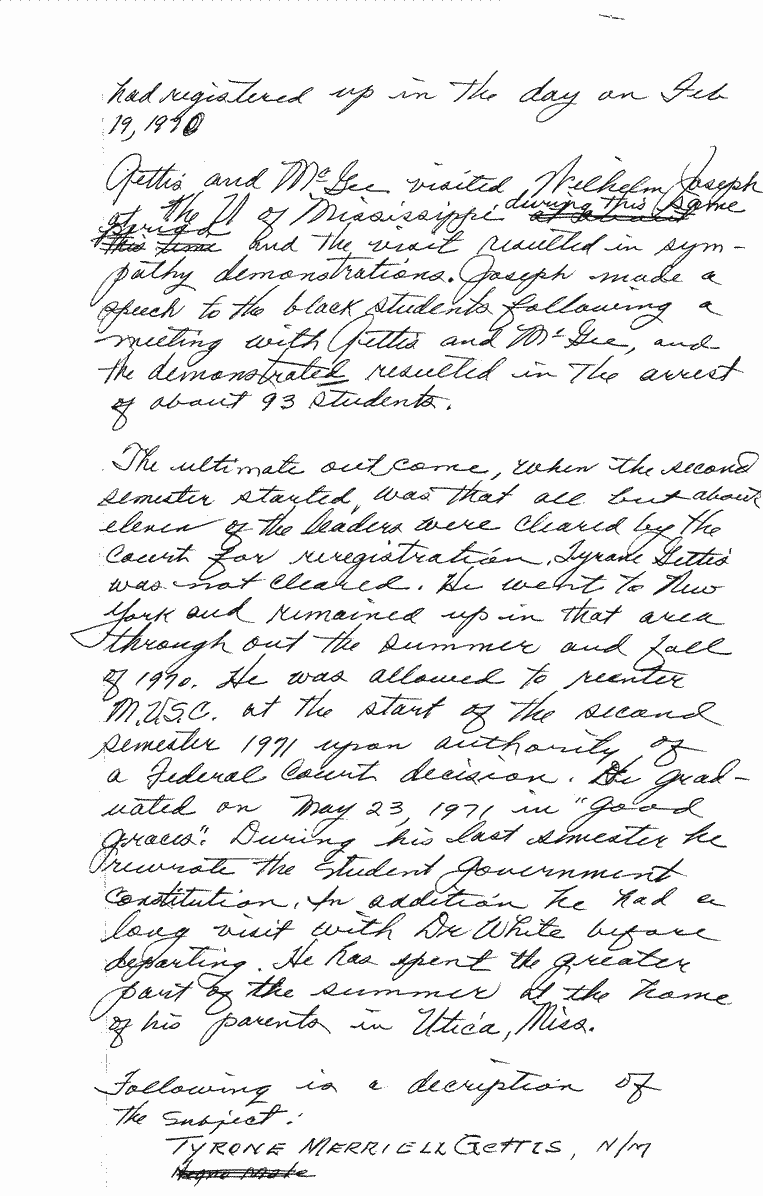 had registered up in the day on Feb
19, 1970
Gettis and McGee visited Wilhelm Joseph
at the U of Mississippi during this same
period and the visit resulted in sym-
pathy demonstrations. Joseph made a
speech to the black students following a
meeting with Gettis and McGee, and
the demonstrated resulted in the arrest
of about 93 students.
The ultimate outcome, when the second
semester started, was that all but about
eleven of the leaders were cleared by the
court for reregistration. Tyrone Gettis
was not cleared. He went to New
York and remained up in that area
through out the summer and fall
of 1970. He was allowed to reenter
M.V.S.C. at the start of the second
semester 1971 upon authority of
a Federal Court decision. He grad-
uated on May 23, 1971 in "good
graces". During his last semester he
rewrote the Student Government
Constitution. In addition he had a
long visit with Dr White before
departing. He has spent the greater
part of the summer at the home
of his parents in Utica, Miss.
Following is a decription of
the subject:
TYRONE MERRIELL GETTIS, N/M
Negro Male